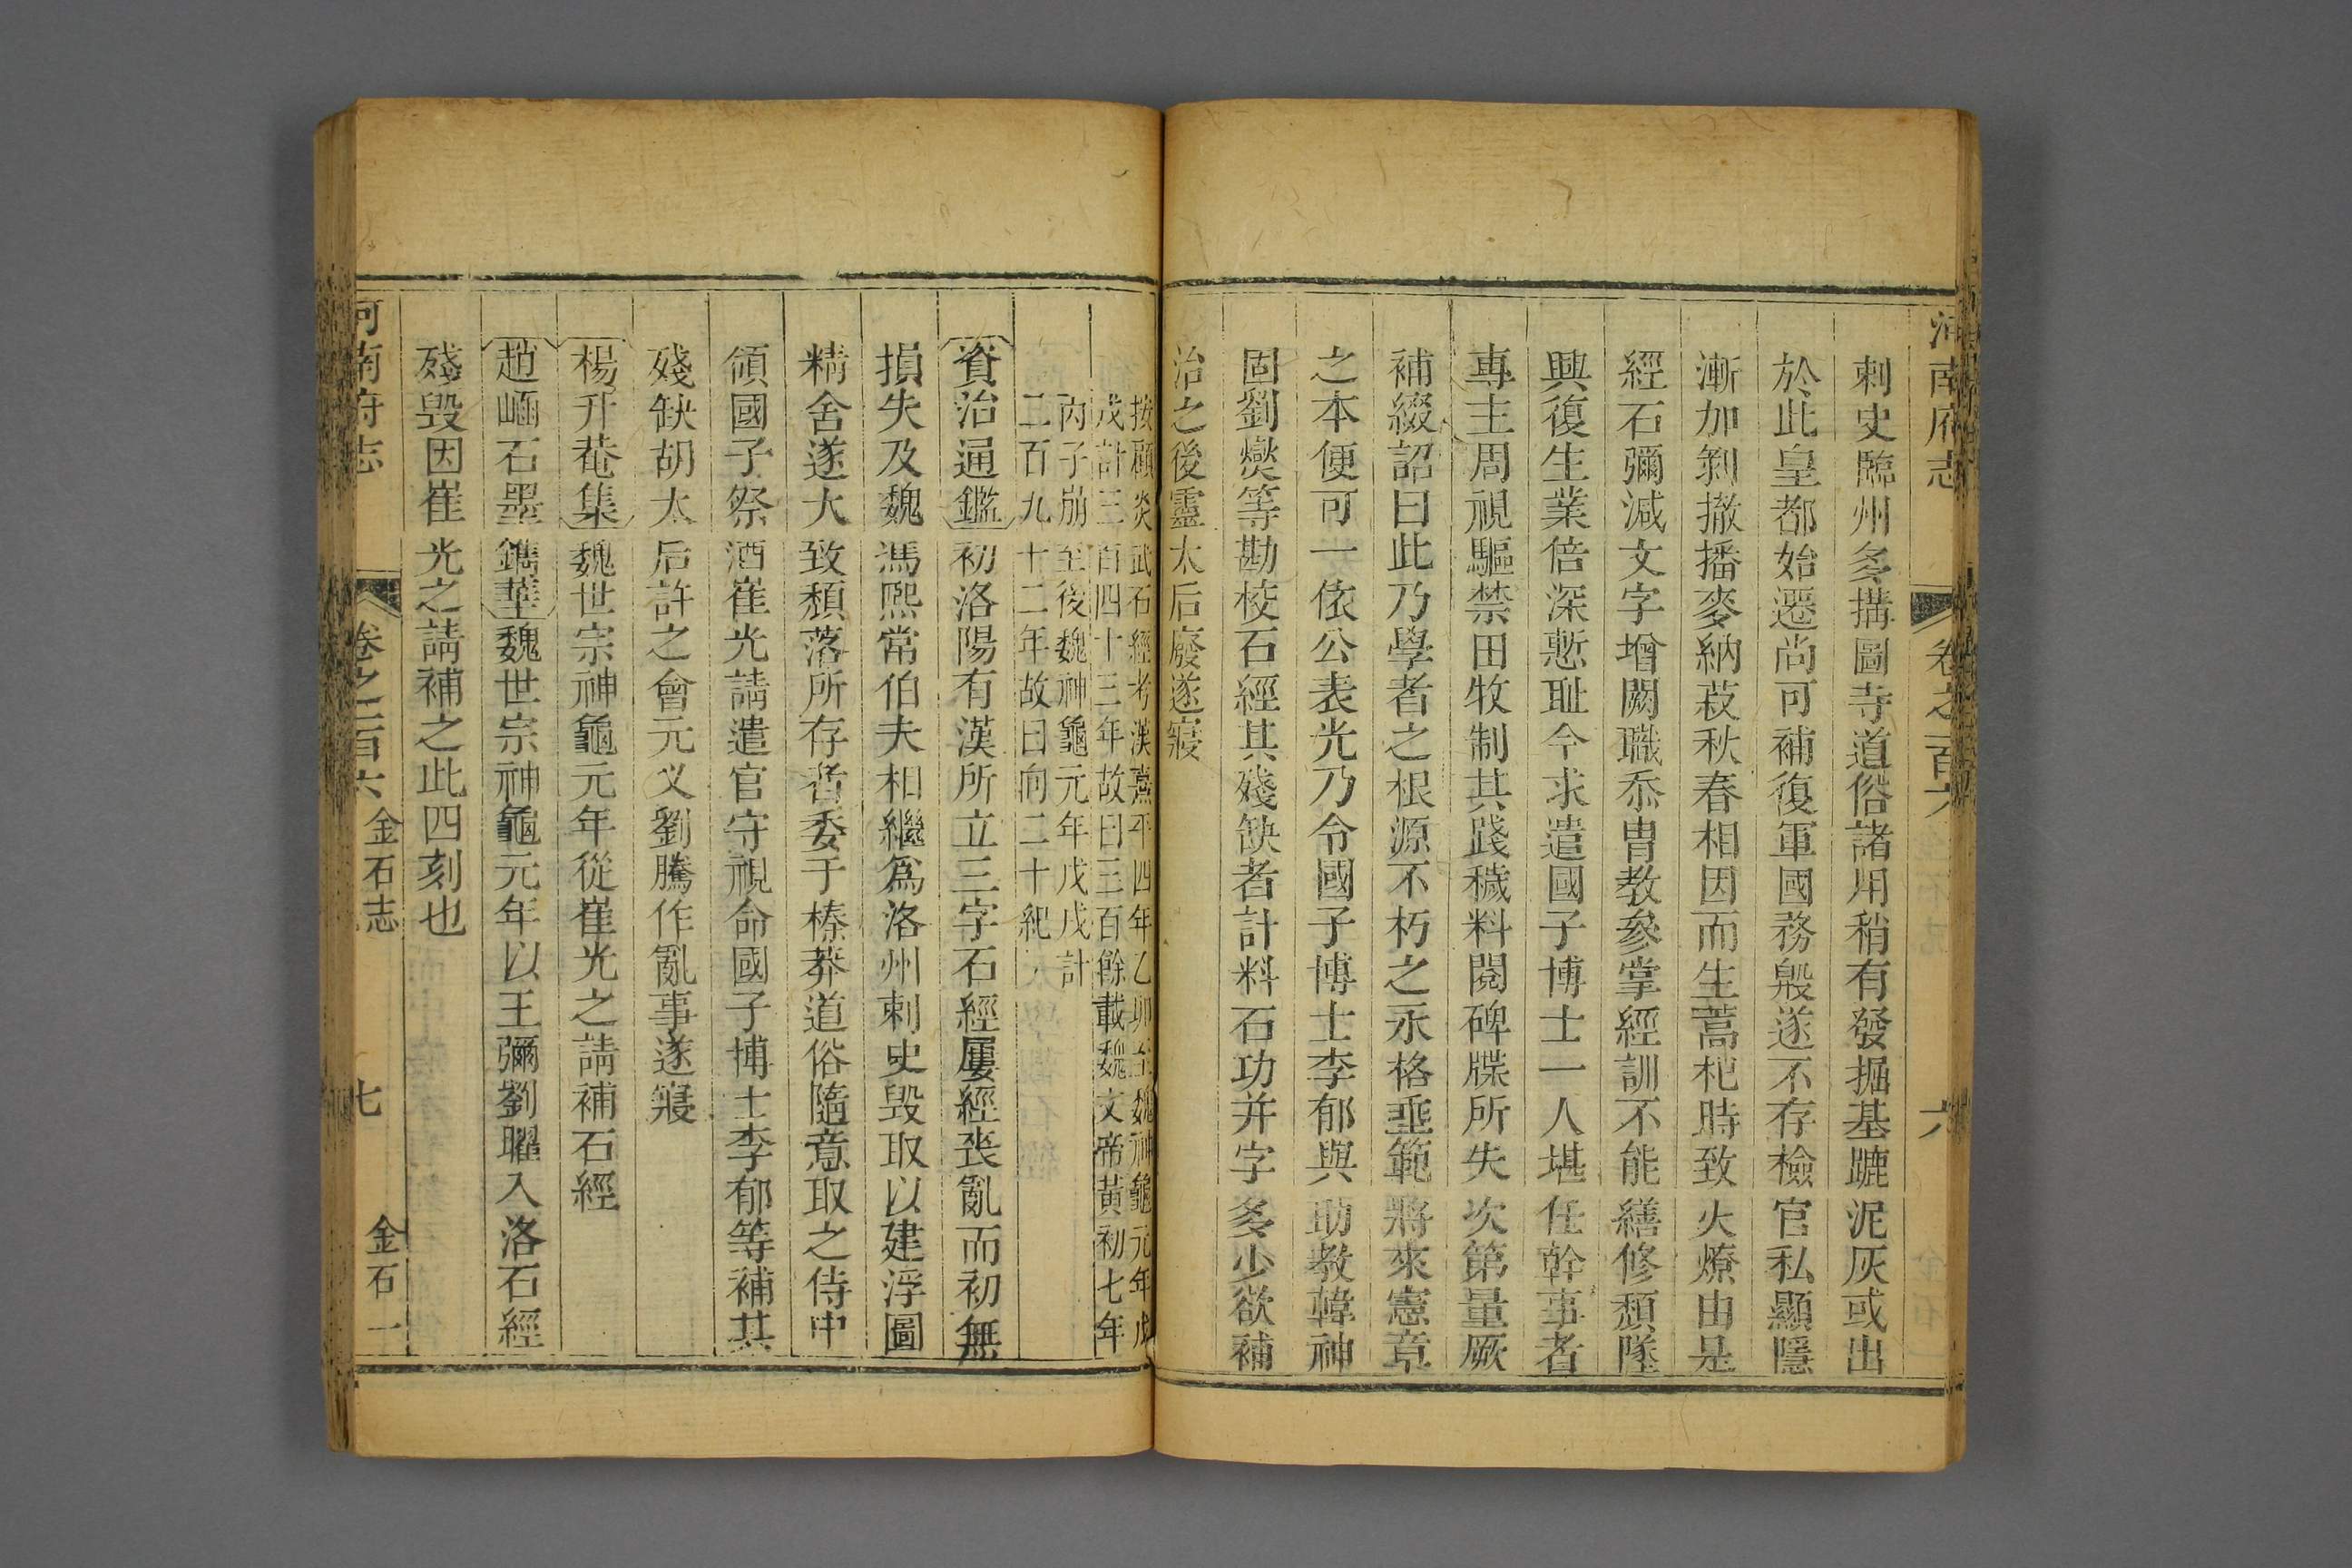 河南府志 卷之一百六 六
刺史臨州多搆圖寺道俗諸用稍有發掘基蹠泥灰或出
於此皇都始遷尚可補復軍國務殷遂不存檢官私顯隱
漸加剝撤播麥納菽秋春相因而生蒿杞時致火燎由是
經石彌減文字增闕職忝冑教參掌經訓不能繕修頹墜
興復生業倍深慙耻今求遣國子博士一人堪任幹事者
專主周視驅禁田牧制其踐穢料閱碑牒所失次第量厥
補綴詔曰此乃學者之根源不朽之永格垂範將來憲章
之本便可一依公表光乃令國子博士李郁與助教韓神
固劉爕等勘校石經其殘缺者計料石功并字多少欲補
治之後靈太后廢遂寢
按顧炎武石經考漢熹平四年乙卯至魏神龜元年戊
戌計三百四十三年故曰三百餘載魏文帝黃初七年
丙子崩至後魏神龜元年戊戌計
二百九十二年故曰向二十紀
資治通鑑初洛陽有漢所立三字石經屢經喪亂而初無
損失及魏馮熙常伯夫相繼爲洛州刺史毀取以建浮圖
精舍遂大致頹落所存者委于榛莽道俗隨意取之侍中
領國子祭酒崔光請遣官守視命國子博士李郁等補其
殘缺胡太后許之會元乂劉騰作亂事遂寢
楊升菴集魏世宗神龜元年從崔光之請補石經
趙崡石墨鐫華魏世宗神龜元年以王彌劉曜入洛石經
殘毀因崔光之請補之此四刻也
河南府志 卷之一百六 金石志 七 金石一